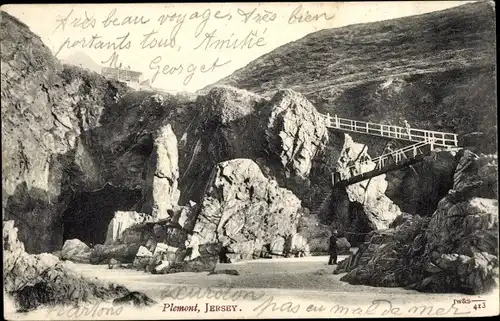 Très beau voyage. Très bien
portants tous. Amitié
Georget
Plemont, JERSEY.
JW&S
413
partons pas eu mal de mer